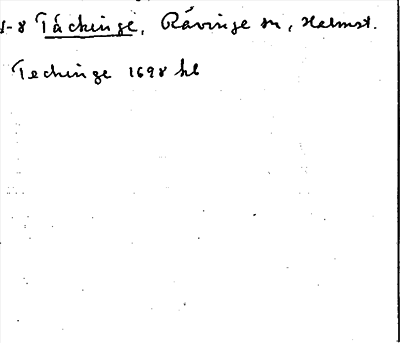 1-8 Tåckinge, Råvinge sn, Halmst.
Teckinge 1698 hb